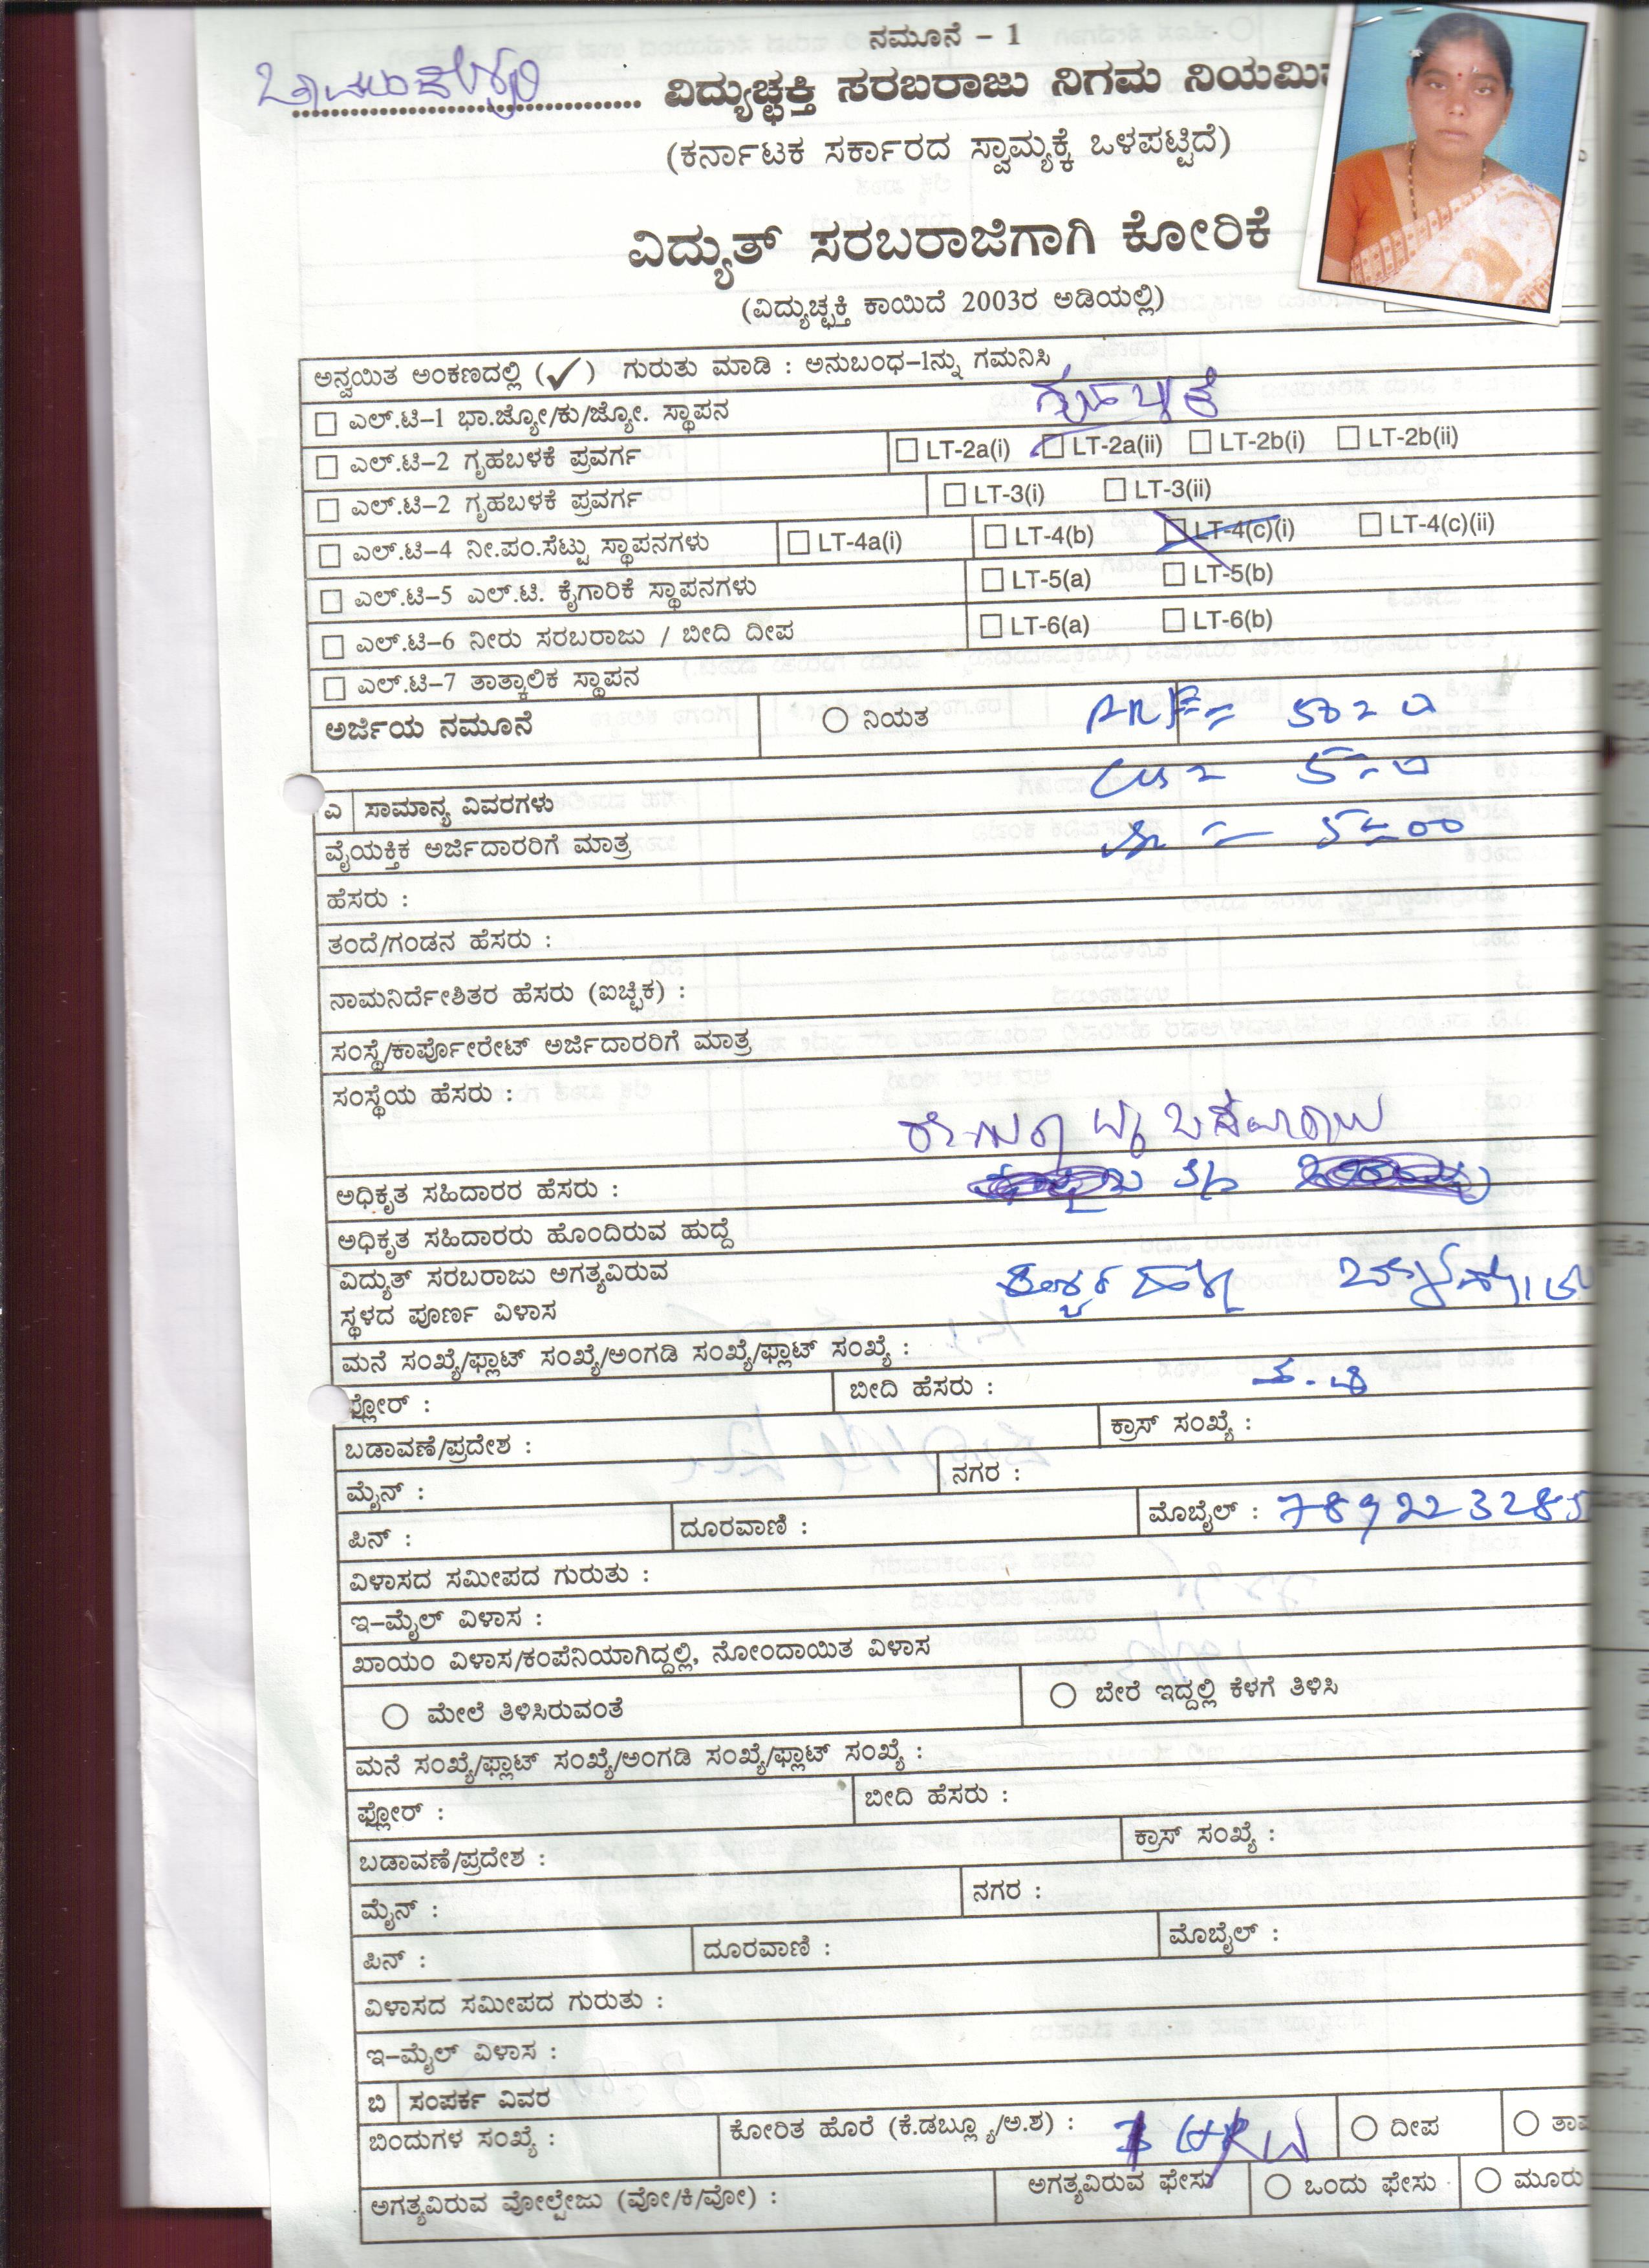 ನಮೂನೆ – 1
.............................. ವಿದ್ಯುಚ್ಛಕ್ತಿ ಸರಬರಾಜು ನಿಗಮ
(ಕರ್ನಾಟಕ ಸರ್ಕಾರದ ಸ್ವಾಮ್ಯಕ್ಕೆ ಒಳಪಟ್ಟಿದೆ)
ವಿದ್ಯುತ್ ಸರಬರಾಜಿಗಾಗಿ ಕೋರಿಕೆ
(ವಿದ್ಯುಚ್ಛಕ್ತಿ ಕಾಯಿದೆ 2003ರ ಅಡಿಯಲ್ಲಿ)
ಅನ್ವಯಿತ ಅಂಕಣದಲ್ಲಿ (✓) ಗುರುತು ಮಾಡಿ : ಅನುಬಂಧ–1ನ್ನು ಗಮನಿಸಿ
ಎಲ್.ಟಿ–1 ಭಾ.ಜ್ಯೋ/ಕು/ಜ್ಯೋ. ಸ್ಥಾಪನ
ಎಲ್.ಟಿ–2 ಗೃಹಬಳಕೆ ಪ್ರವರ್ಗ LT-2a(i) LT-2a(ii) LT-2b(i) LT-2b(ii)
ಎಲ್.ಟಿ–2 ಗೃಹಬಳಕೆ ಪ್ರವರ್ಗ LT-3(i) LT-3(ii)
ಎಲ್.ಟಿ–4 ನೀ.ಪಂ.ಸೆಟ್ಟು ಸ್ಥಾಪನಗಳು LT-4a(i) LT-4(b) LT-4(c)(i) LT-4(c)(ii)
ಎಲ್.ಟಿ–5 ಎಲ್.ಟಿ. ಕೈಗಾರಿಕೆ ಸ್ಥಾಪನಗಳು LT-5(a) LT-5(b)
ಎಲ್.ಟಿ–6 ನೀರು ಸರಬರಾಜು / ಬೀದಿ ದೀಪ LT-6(a) LT-6(b)
ಎಲ್.ಟಿ–7 ತಾತ್ಕಾಲಿಕ ಸ್ಥಾಪನ
ಅರ್ಜಿಯ ನಮೂನೆ ನಿಯತ
ಎ ಸಾಮಾನ್ಯ ವಿವರಗಳು
ವೈಯಕ್ತಿಕ ಅರ್ಜಿದಾರರಿಗೆ ಮಾತ್ರ
ಹೆಸರು :
ತಂದೆ/ಗಂಡನ ಹೆಸರು :
ನಾಮನಿರ್ದೇಶಿತರ ಹೆಸರು (ಐಚ್ಛಿಕ) :
ಸಂಸ್ಥೆ/ಕಾರ್ಪೋರೇಟ್ ಅರ್ಜಿದಾರರಿಗೆ ಮಾತ್ರ
ಸಂಸ್ಥೆಯ ಹೆಸರು :
ಅಧಿಕೃತ ಸಹಿದಾರರ ಹೆಸರು :
ಅಧಿಕೃತ ಸಹಿದಾರರು ಹೊಂದಿರುವ ಹುದ್ದೆ
ವಿದ್ಯುತ್ ಸರಬರಾಜು ಅಗತ್ಯವಿರುವ
ಸ್ಥಳದ ಪೂರ್ಣ ವಿಳಾಸ
ಮನೆ ಸಂಖ್ಯೆ/ಫ್ಲಾಟ್ ಸಂಖ್ಯೆ/ಅಂಗಡಿ ಸಂಖ್ಯೆ/ಫ್ಲಾಟ್ ಸಂಖ್ಯೆ :
ಫ್ಲೋರ್ : ಬೀದಿ ಹೆಸರು :
ಬಡಾವಣೆ/ಪ್ರದೇಶ : ಕ್ರಾಸ್ ಸಂಖ್ಯೆ :
ಮೈನ್ : ನಗರ :
ಪಿನ್ : ದೂರವಾಣಿ : ಮೊಬೈಲ್ : 7892232285
ವಿಳಾಸದ ಸಮೀಪದ ಗುರುತು :
ಇ–ಮೈಲ್ ವಿಳಾಸ :
ಖಾಯಂ ವಿಳಾಸ/ಕಂಪೆನಿಯಾಗಿದ್ದಲ್ಲಿ, ನೋಂದಾಯಿತ ವಿಳಾಸ
ಮೇಲೆ ತಿಳಿಸಿರುವಂತೆ ಬೇರೆ ಇದ್ದಲ್ಲಿ ಕೆಳಗೆ ತಿಳಿಸಿ
ಮನೆ ಸಂಖ್ಯೆ/ಫ್ಲಾಟ್ ಸಂಖ್ಯೆ/ಅಂಗಡಿ ಸಂಖ್ಯೆ/ಫ್ಲಾಟ್ ಸಂಖ್ಯೆ :
ಫ್ಲೋರ್ : ಬೀದಿ ಹೆಸರು :
ಬಡಾವಣೆ/ಪ್ರದೇಶ : ಕ್ರಾಸ್ ಸಂಖ್ಯೆ :
ಮೈನ್ : ನಗರ :
ಪಿನ್ : ದೂರವಾಣಿ : ಮೊಬೈಲ್ :
ವಿಳಾಸದ ಸಮೀಪದ ಗುರುತು :
ಇ–ಮೈಲ್ ವಿಳಾಸ :
ಬಿ ಸಂಪರ್ಕ ವಿವರ
ಬಿಂದುಗಳ ಸಂಖ್ಯೆ : ಕೋರಿತ ಹೊರೆ (ಕೆ.ಡಬ್ಲ್ಯೂ/ಅ.ಶ) : ದೀಪ
ಅಗತ್ಯವಿರುವ ವೋಲ್ಟೇಜು (ವೋ/ಕಿ/ವೋ) : ಅಗತ್ಯವಿರುವ ಫೇಸು ಒಂದು ಫೇಸು ಮೂರು